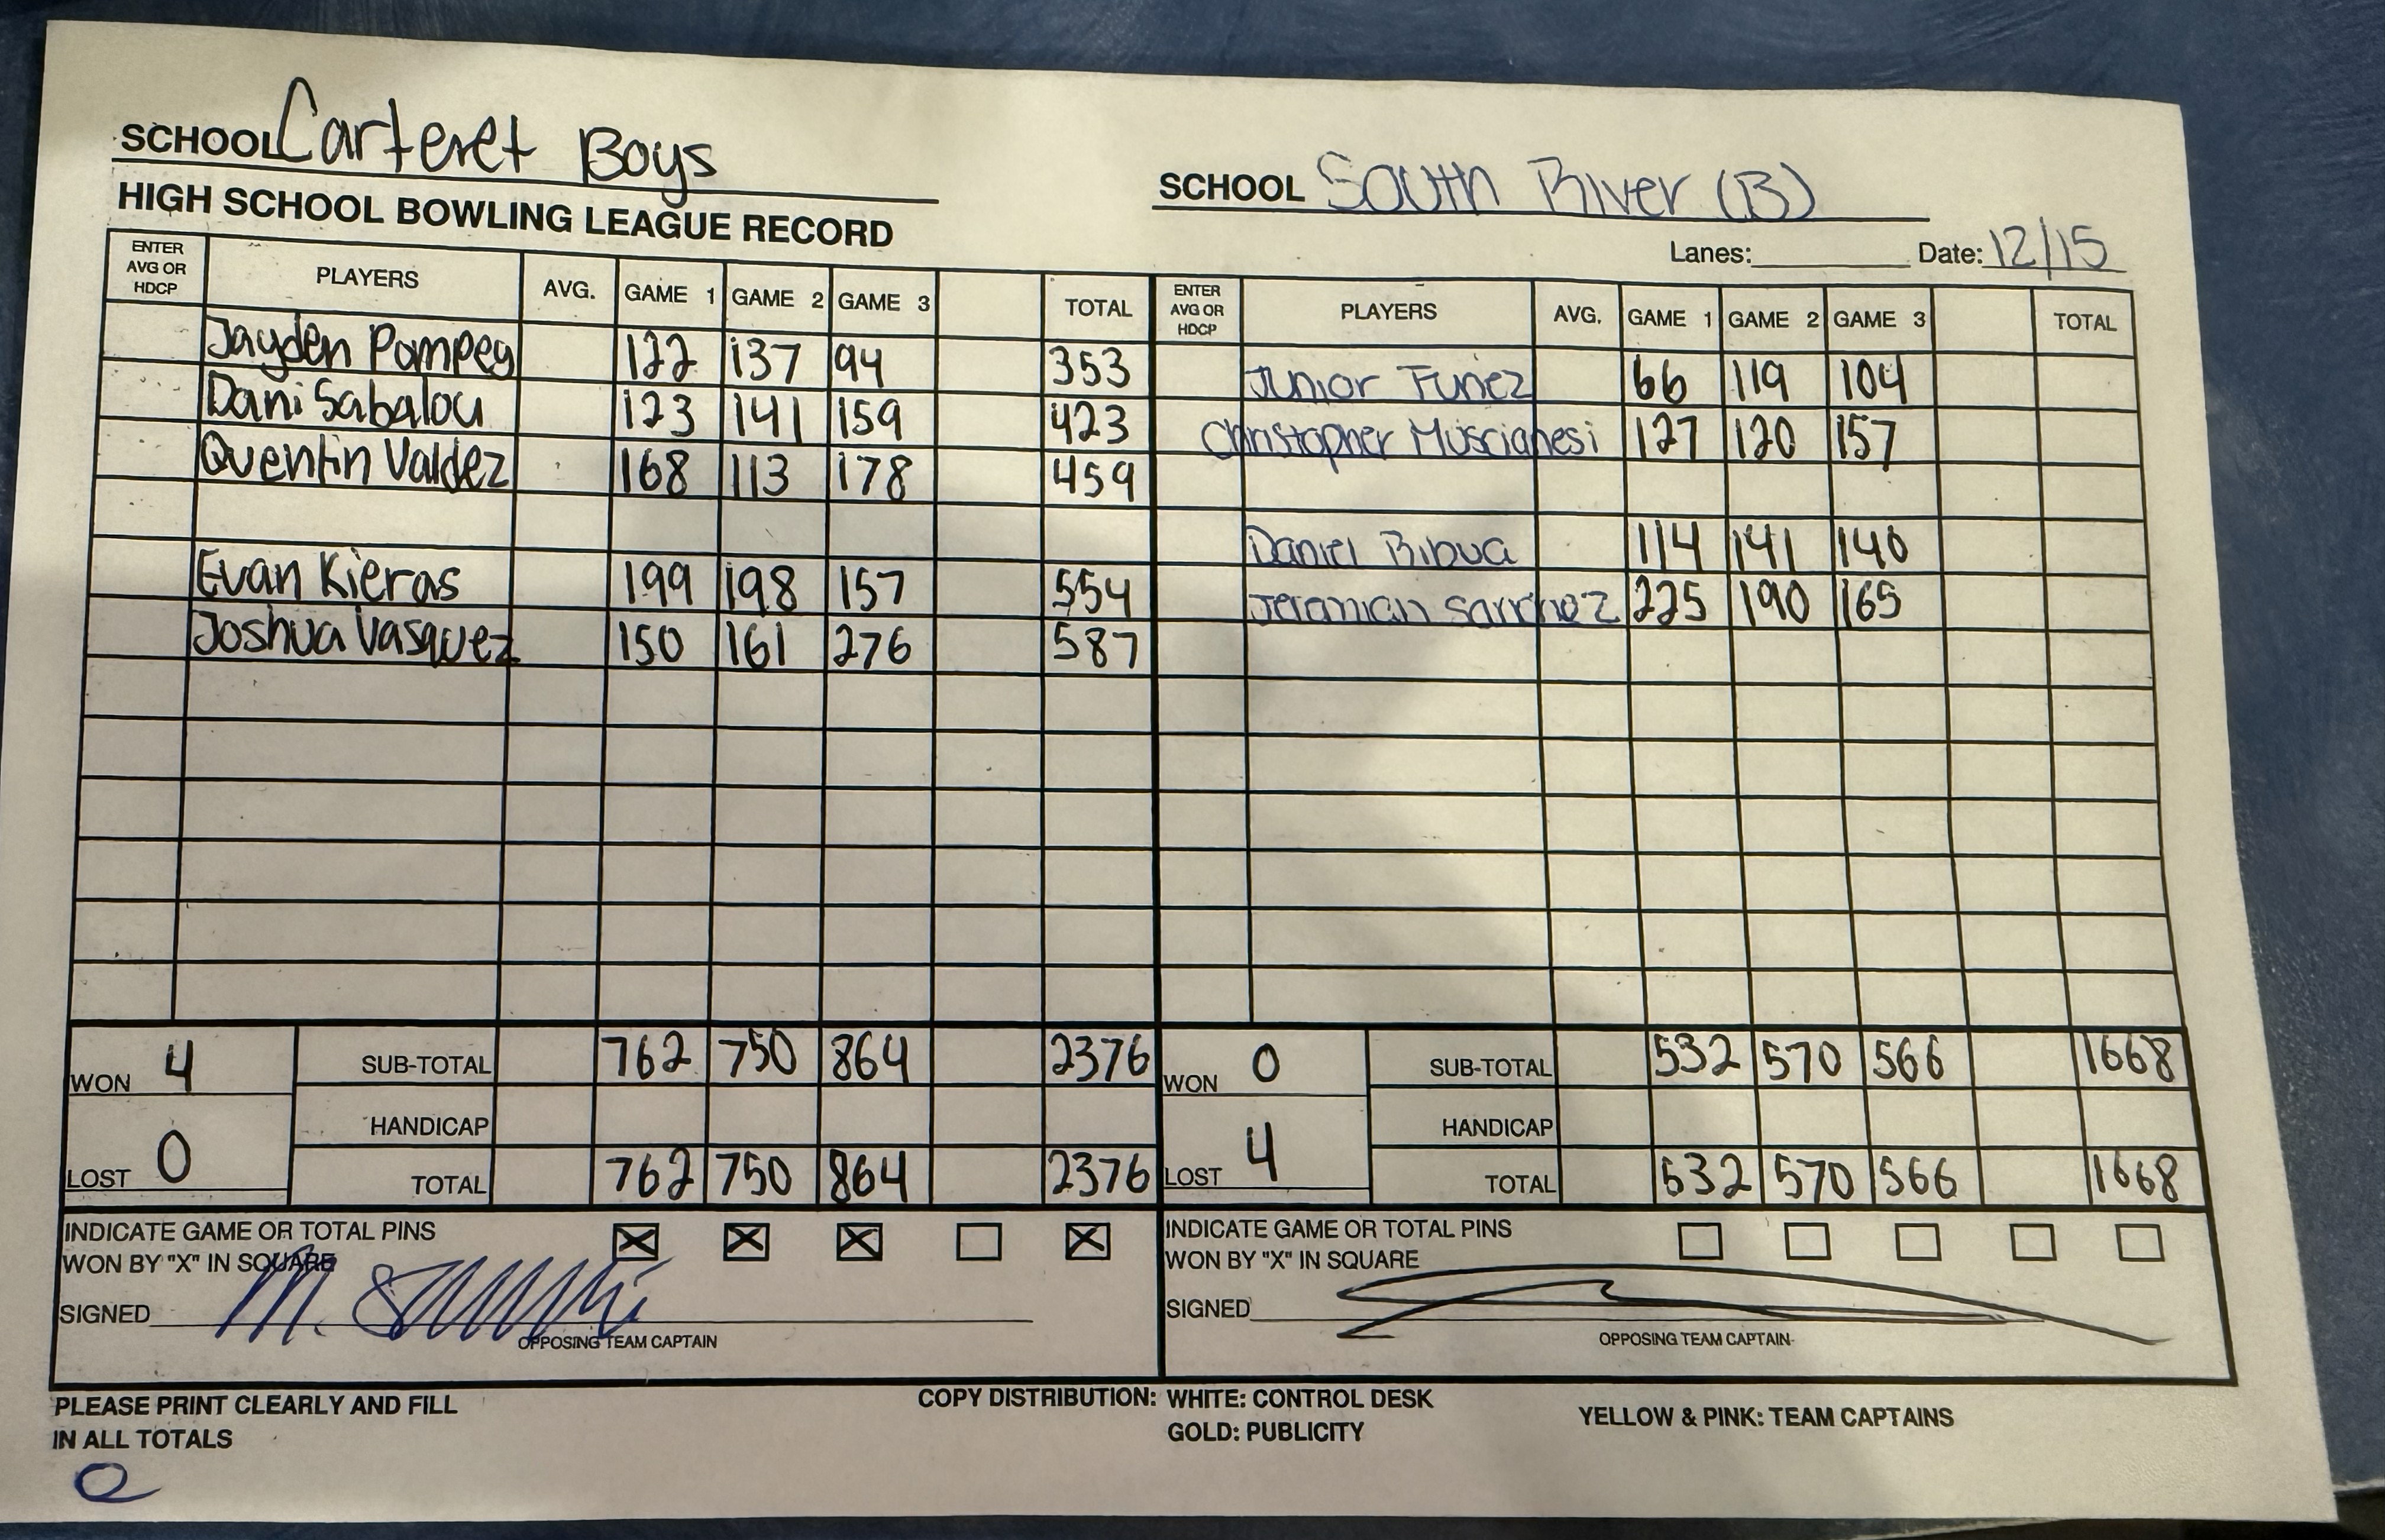 SCHOOL Carteret Boys
HIGH SCHOOL BOWLING LEAGUE RECORD
ENTER AVG OR HDCP PLAYERS AVG. GAME 1 GAME 2 GAME 3 TOTAL
Jayden Pompey 122 137 94 353
Dani Sabalou 123 141 159 423
Quentin Valdez 168 113 178 459
Evan Kieras 199 198 157 554
Joshua Vasquez 150 161 276 587
WON 4 SUB-TOTAL 762 750 864 2376
HANDICAP
LOST 0 TOTAL 762 750 864 2376
INDICATE GAME OR TOTAL PINS
WON BY "X" IN SQUARE
SIGNED
OPPOSING TEAM CAPTAIN
SCHOOL South River (B)
Lanes: Date: 12/15
ENTER AVG OR HDCP PLAYERS AVG. GAME 1 GAME 2 GAME 3 TOTAL
Junior Funez 66 119 104
Christopher 127 120 157
Daniel 114 141 140
Sanchez 225 190 165
WON 0 SUB-TOTAL 532 570 566 1668
HANDICAP
LOST 4 TOTAL 532 570 566 1668
INDICATE GAME OR TOTAL PINS
WON BY "X" IN SQUARE
SIGNED
OPPOSING TEAM CAPTAIN
PLEASE PRINT CLEARLY AND FILL
IN ALL TOTALS
COPY DISTRIBUTION: WHITE: CONTROL DESK
GOLD: PUBLICITY
YELLOW & PINK: TEAM CAPTAINS